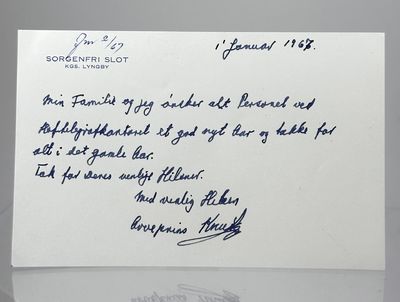 Jnr 2/67
SORGENFRI SLOT
KGS. LYNGBY
1 Januar 1967.
Min Familie og jeg ønsker alt Personel ved
et god nyt Aar og takke for
alt i det gamle Aar.
Tak for Deres venlige Hilsner.
Med venlig Hilsen
Arveprins Knud